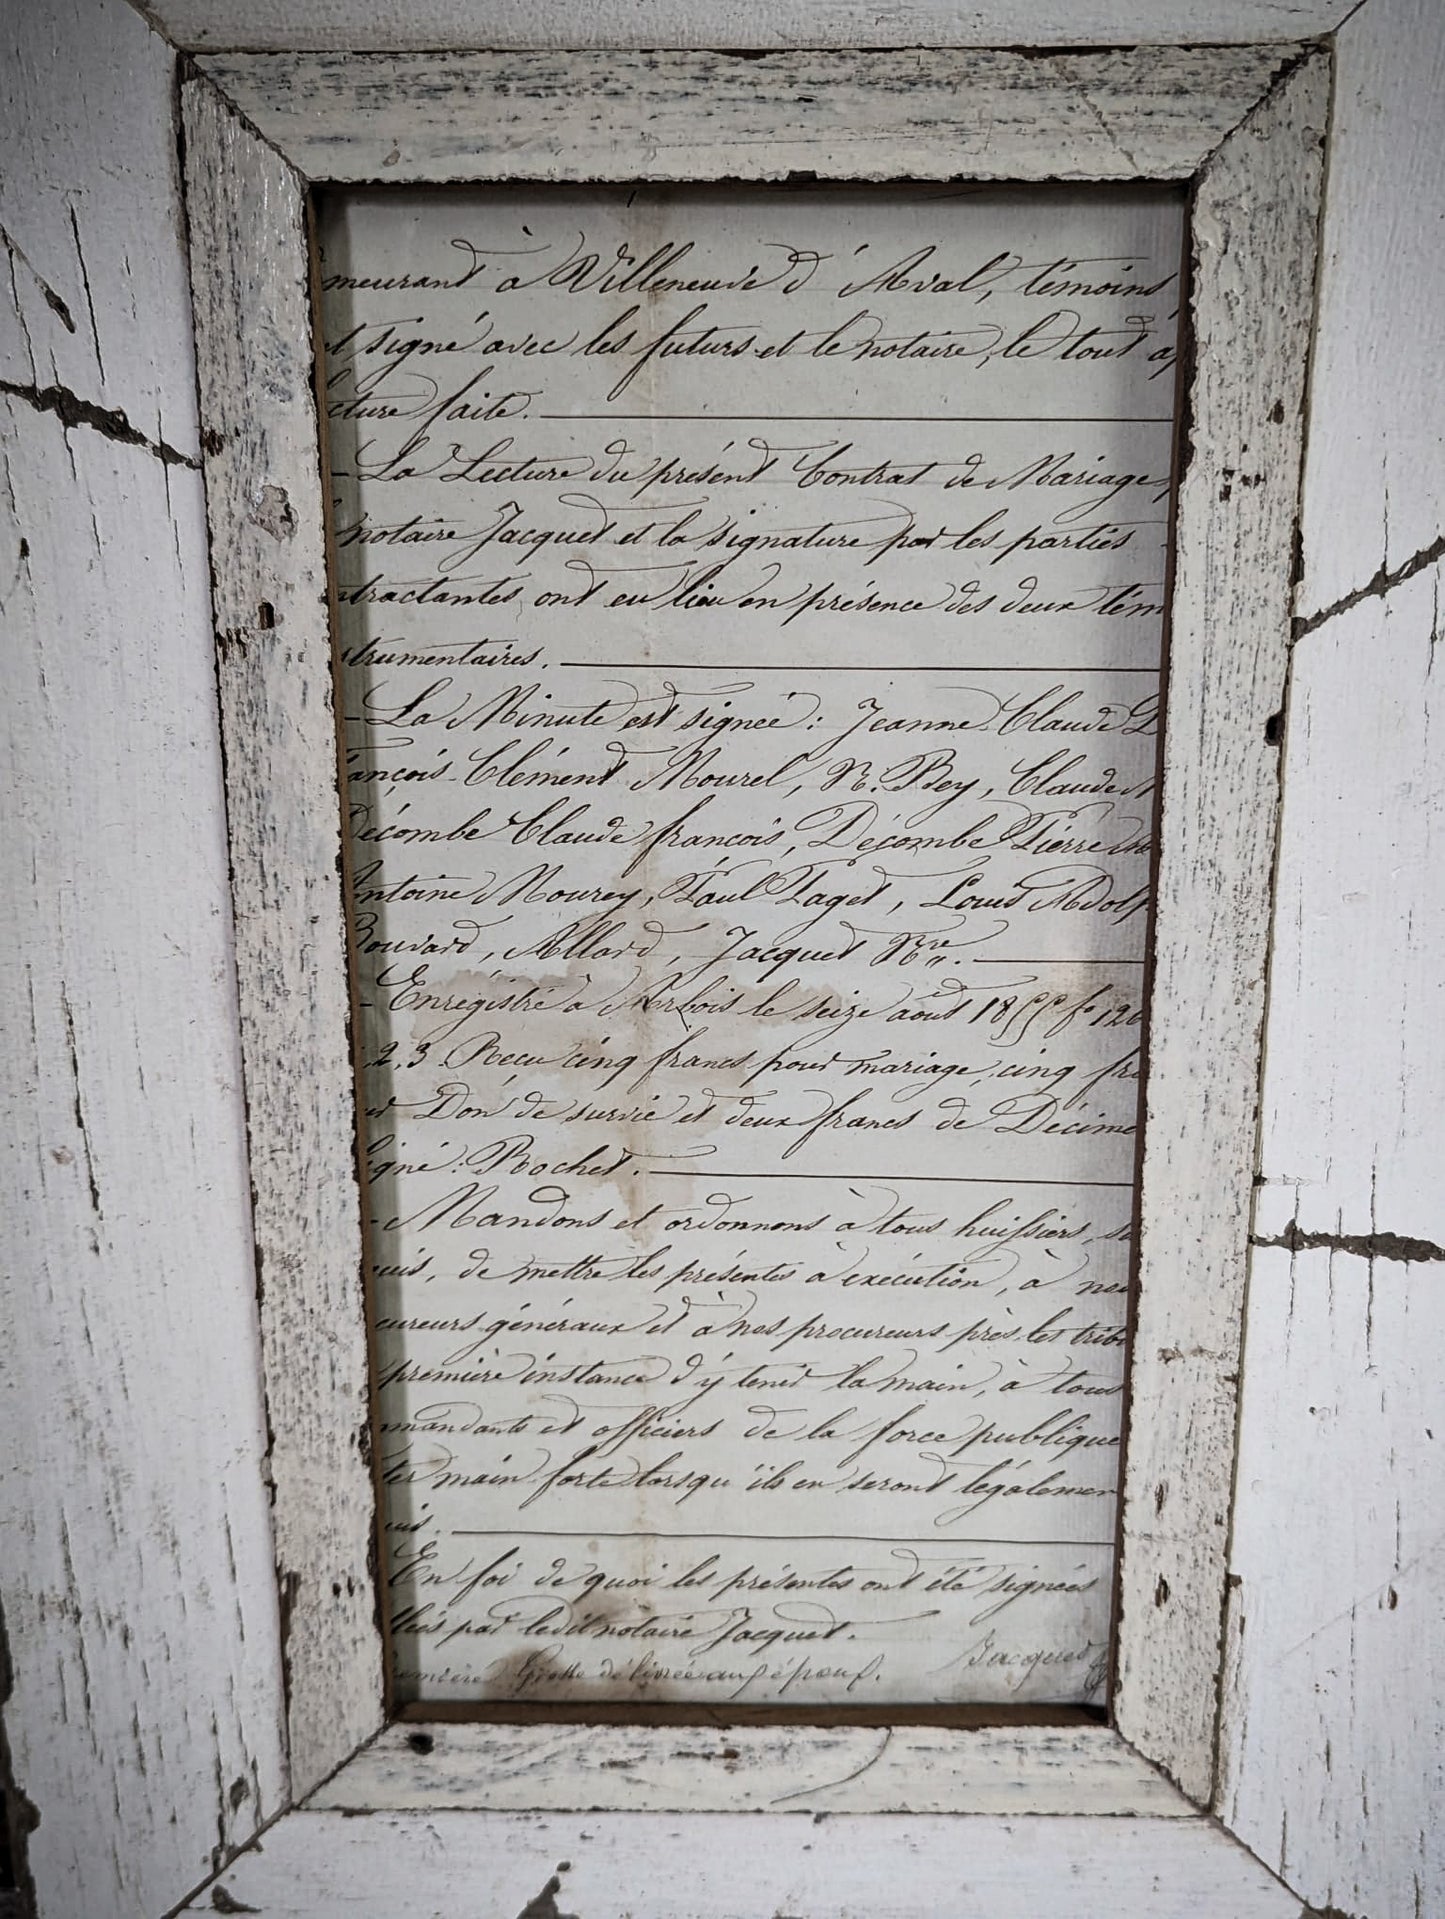 meurant à Villeneuve d'Aval, témoins
et signé avec les futurs et le notaire, le tout a
cture faite.
- La Lecture du présent Contrat de Mariage,
notaire Jacquet et la signature par les parties
tractantes ont eu lieu en présence des deux tém
trumentaires.
- La Minute est signée : Jeanne Claude
ançois Clément Mourel, N. Bey, Claude
Décombe Claude françois, Décombe Pierre
Antoine Mourey, Paul Paget, Louis Adolp
Bouvard, Allard, Jacquet Nre.
- Enregistré à Arbois le seize août 1855 fo 126
2, 3. Reçu cinq francs pour mariage, cinq fra
ur Don de survie et deux francs de Décime
igné : Rochet.
- Mandons et ordonnons à tous huissiers, su
uis, de mettre les présentes à exécution, à nos
cureurs généraux et à nos procureurs près les tribu
première instance d'y tenir la main, à tous
mmandants et officiers de la force publique
ter main forte lorsqu'ils en seront légalemen
uis.
En foi de quoi les présentes ont été signées
llées par ledit notaire Jacquet.
remière Grosse délivrée aux époux. Jacquet